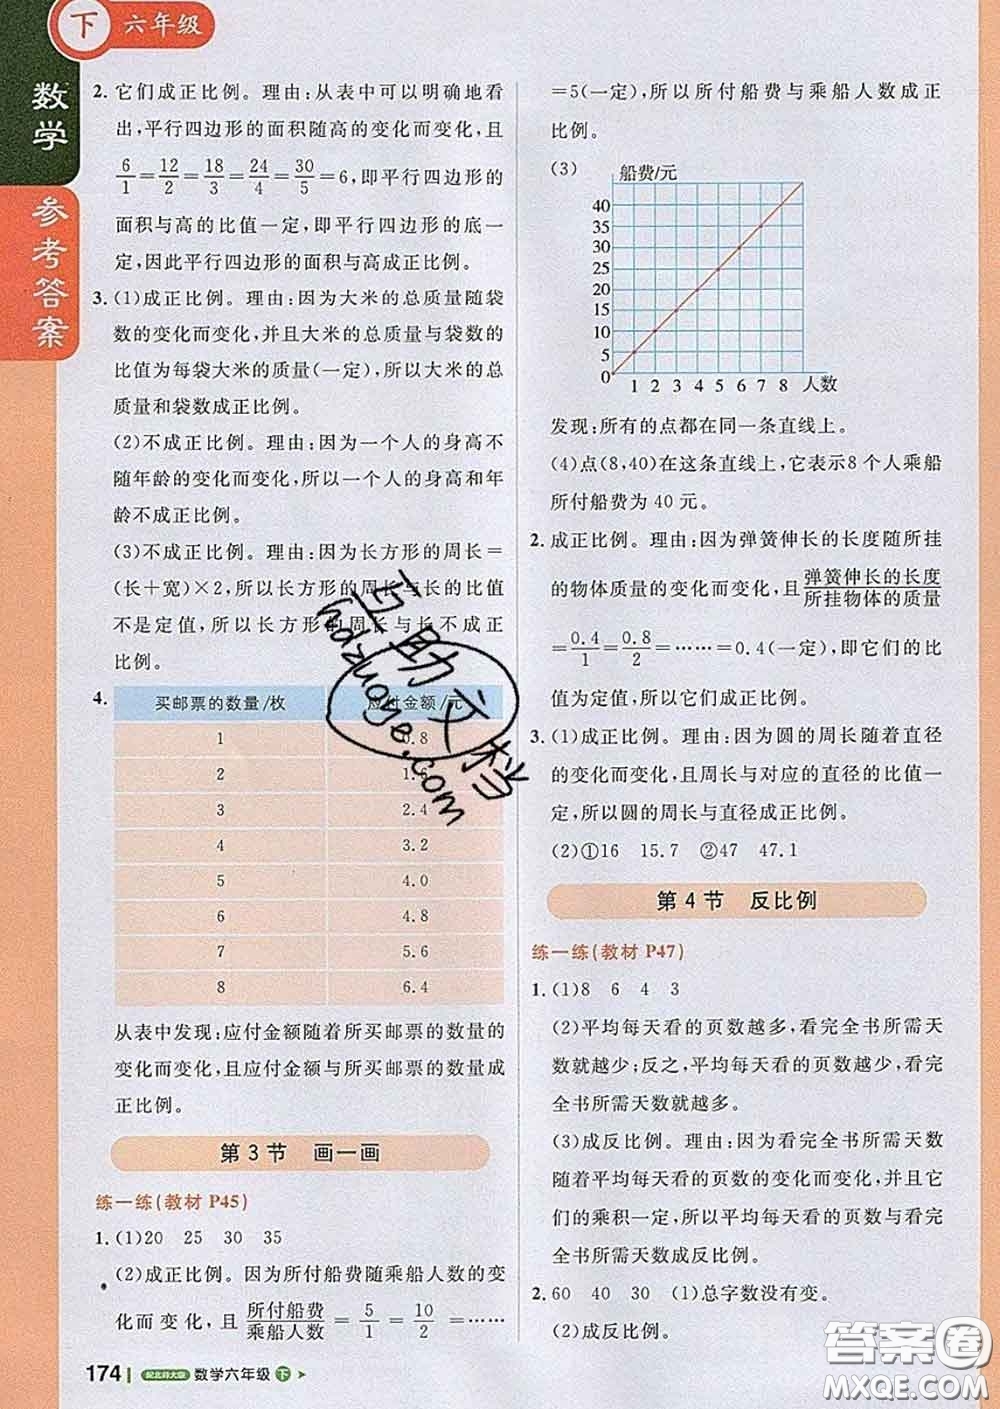 下 六年级
数学
参考答案
2. 它们成正比例。理由:从表中可以明确地看
出,平行四边形的面积随高的变化而变化,且
6/1=12/2=18/3=24/4=30/5=6,即平行四边形的
面积与高的比值一定,即平行四边形的底一
定,因此平行四边形的面积与高成正比例。
3. (1)成正比例。理由:因为大米的总质量随袋
数的变化而变化,并且大米的总质量与袋数的
比值为每袋大米的质量(一定),所以大米的总
质量和袋数成正比例。
(2)不成正比例。理由:因为一个人的身高不
随年龄的变化而变化,所以一个人的身高和年
龄不成正比例。
(3)不成正比例。理由:因为长方形的周长=
(长+宽)×2,所以长方形的周长与长的比值
不是定值,所以长方形的周长与长不成正
比例。
4. 买邮票的数量/枚 应付金额/元
1 0.8
2 1.6
3 2.4
4 3.2
5 4.0
6 4.8
7 5.6
8 6.4
从表中发现:应付金额随着所买邮票的数量的
变化而变化,且应付金额与所买邮票的数量成
正比例。
第3节 画一画
练一练(教材 P45)
1. (1)20 25 30 35
(2)成正比例。因为所付船费随乘船人数的变
化而变化,且所付船费/乘船人数=5/1=10/2=……
=5(一定),所以所付船费与乘船人数成正
比例。
(3)
船费/元
40
35
30
25
20
15
10
5
0
1 2 3 4 5 6 7 8 人数
发现:所有的点都在同一条直线上。
(4)点(8,40)在这条直线上,它表示8个人乘船
所付船费为40元。
2. 成正比例。理由:因为弹簧伸长的长度随所挂
的物体质量的变化而变化,且弹簧伸长的长度/所挂物体的质量
=0.4/1=0.8/2=……=0.4(一定),即它们的比
值为定值,所以它们成正比例。
3. (1)成正比例。理由:因为圆的周长随着直径
的变化而变化,且周长与对应的直径的比值一
定,所以圆的周长与直径成正比例。
(2)①16 15.7 ②47 47.1
第4节 反比例
练一练(教材 P47)
1. (1)8 6 4 3
(2)平均每天看的页数越多,看完全书所需天
数就越少;反之,平均每天看的页数越少,看完
全书所需天数就越多。
(3)成反比例。理由:因为看完全书所需天数
随着平均每天看的页数的变化而变化,并且它
们的乘积一定,所以平均每天看的页数与看完
全书所需天数成反比例。
2. 60 40 30 (1)总字数没有变。
(2)成反比例。
174 配北师大版 数学六年级 下
互助文档
huzuoye.com
答案圈
MXQE.COM